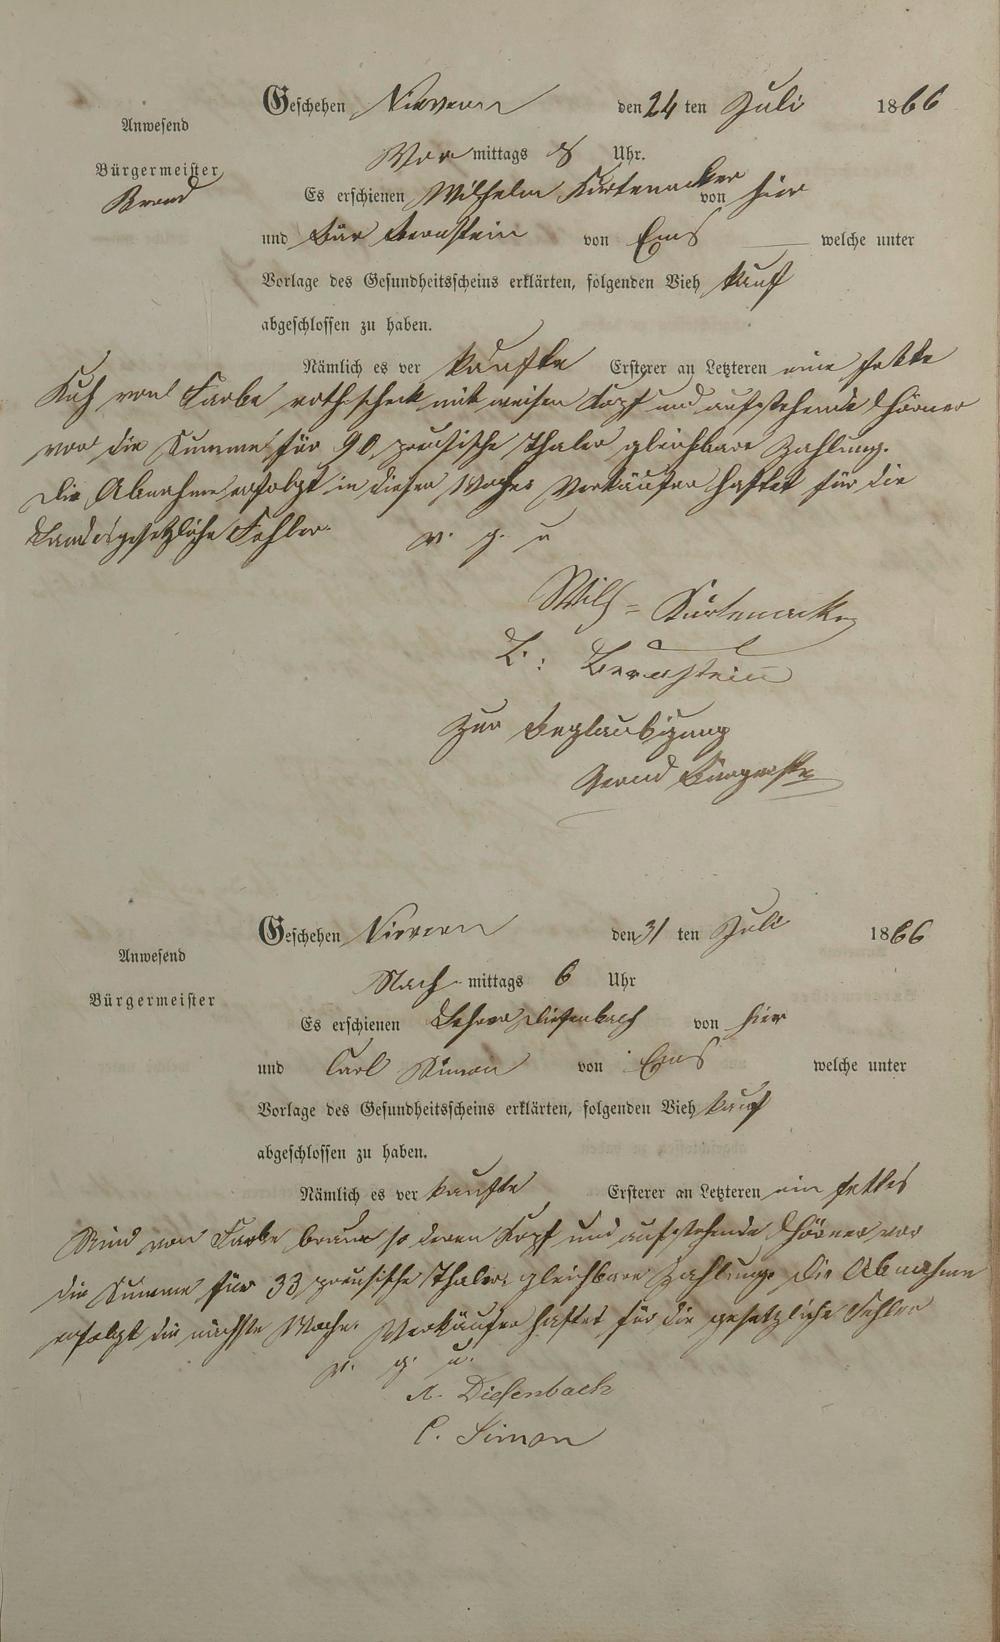 Geschehen Nievern den 24 ten Juli 1866
Anwesend
Vor mittags 8 Uhr.
Bürgermeister
Es erschienen Wilhelm Kurtenacker von hier
und Bär Bernstein von Ems welche unter
Vorlage des Gesundheitsscheins erklärten, folgenden Vieh kauf
abgeschlossen zu haben.
Nämlich es ver kaufte Ersterer an Letzteren eine fette
Kuh von Farbe rothscheck mit weisen Kopf und aufstehende Hörner
vor die Summe für 90 preusische Thaler gleichbare Zahlung.
Die Abnahme erfolgt in dieser Woche Verkäufer haftet für die
Landesgesetzliche Fehler.
v. g. u
Wilh= Kurtenacker
B: Bernstein
Zur Beglaubigung
Bürgermstr
Geschehen Nievern den 31 ten Juli 1866
Anwesend
Nach mittags 6 Uhr
Bürgermeister
Es erschienen Lehrer Diefenbach von hier
und Carl Simon von Ems welche unter
Vorlage des Gesundheitsscheins erklärten, folgenden Vieh kauf
abgeschlossen zu haben.
Nämlich es ver kaufte Ersterer an Letzteren ein fettes
Rind von Farbe braun so deren Kopf und aufstehende Hörner vor
die Summe für 33 preusische Thaler gleichbare Zahlung. Die Abnahme
erfolgt die nächste Woche. Verkäufer haftet für die gesetzliche Fehler
v. g. u.
A. Diefenbach
C. Simon